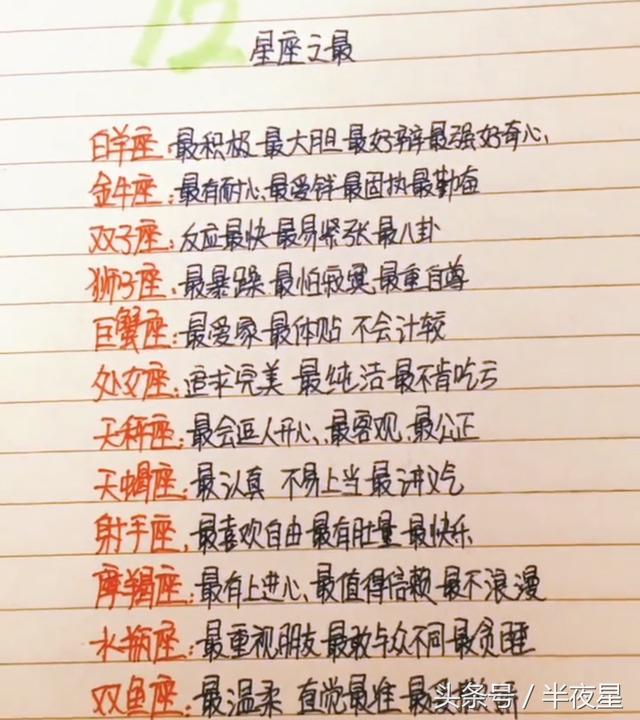 12
星座之最
白羊座:最积极 最大胆 最好辩 最强好奇心、
金牛座:最有耐心、最爱钱 最固执 最勤奋
双子座:反应最快 最易紧张 最八卦
狮子座:最暴躁 最怕寂寞、最重自尊
巨蟹座:最爱家 最体贴 不会计较
处女座:追求完美 最纯洁 最不肯吃亏
天秤座:最会逗人开心、最客观、最公正
天蝎座:最认真 不易上当 最讲义气
射手座,最喜欢自由 最有肚量 最快乐
摩羯座:最有上进心、最值得信赖 最不浪漫
水瓶座:最重视朋友 最敢与众不同 最贪睡
双鱼座:最温柔 直觉最准 最
头条号/半夜星